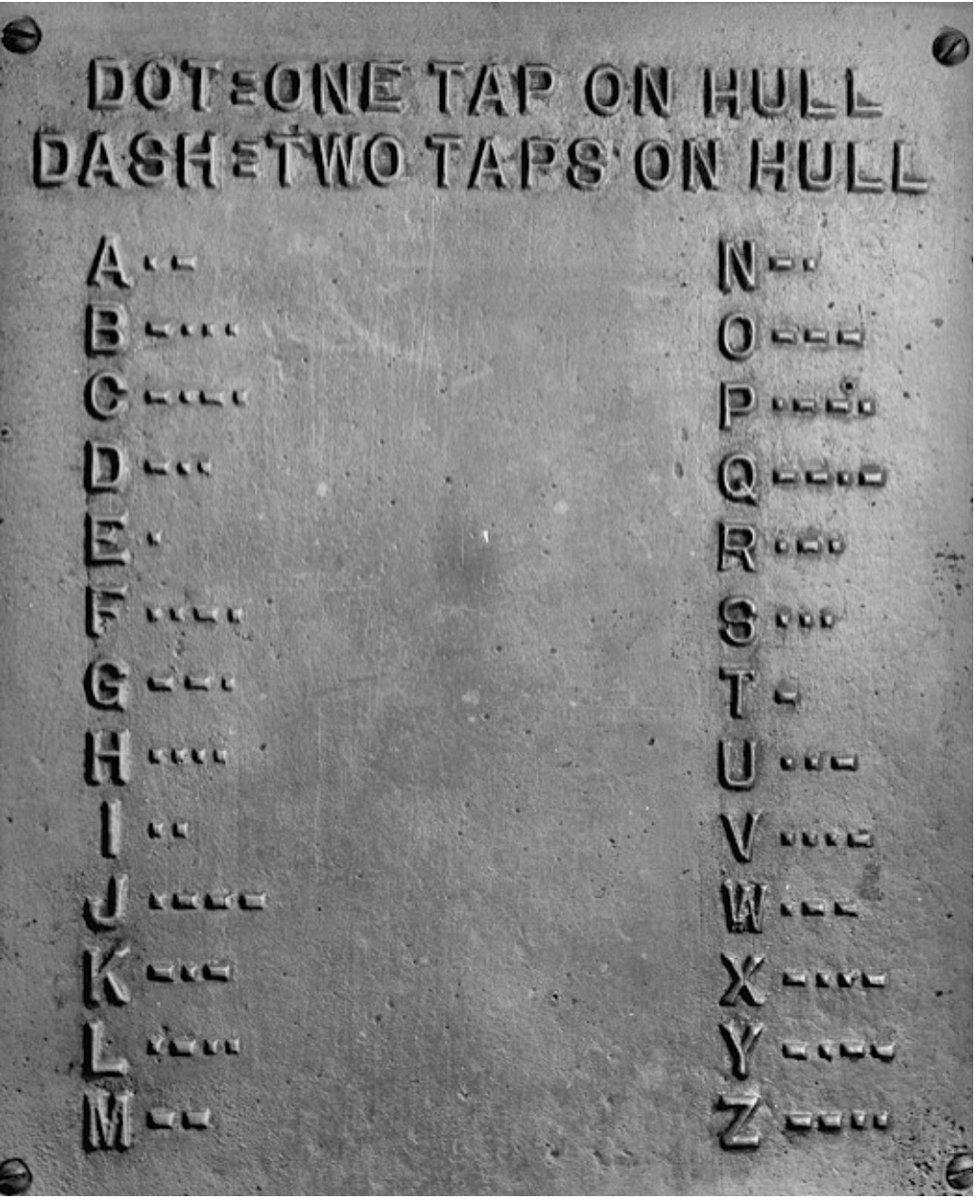 DOT=ONE TAP ON HULL
DASH=TWO TAPS ON HULL
A .-
B -...
C -.-.
D -..
E .
F ..-.
G --.
H ....
I ..
J .---
K -.-
L .-..
M --
N -.
O ---
P .--.
Q --.-
R .-.
S ...
T -
U ..-
V ...-
W .--
X -..-
Y -.--
Z --..